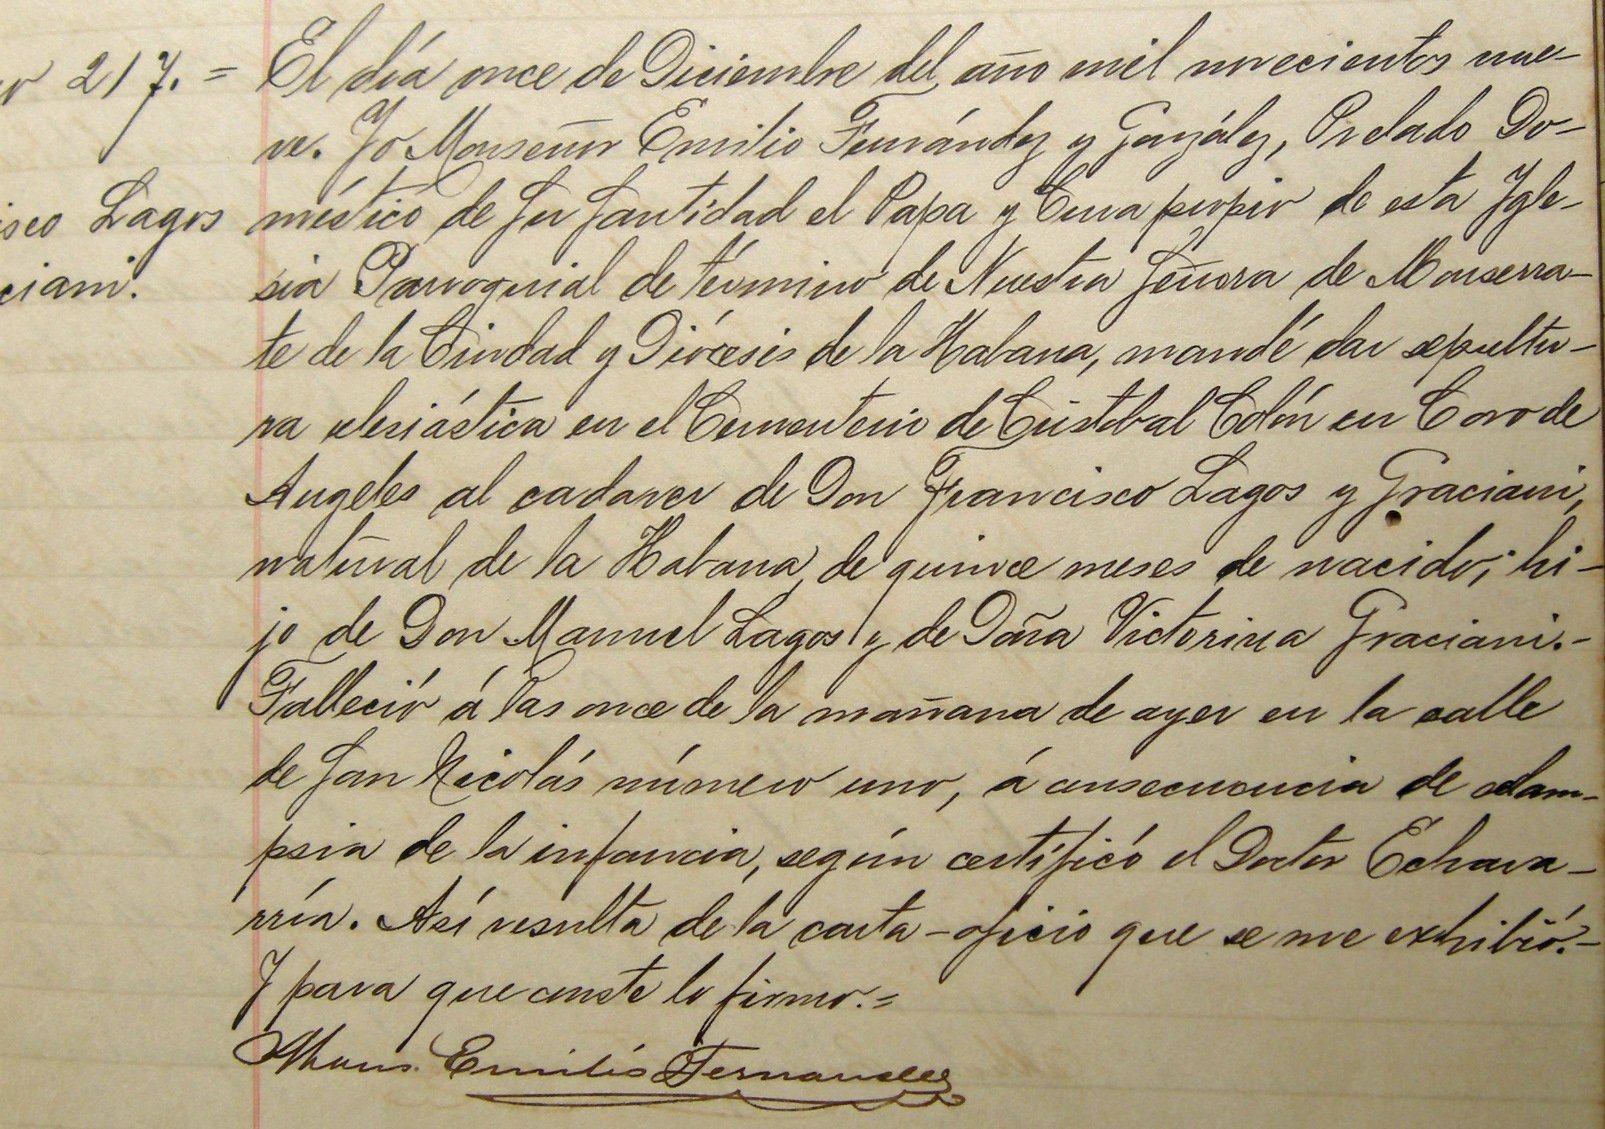 217. = El día once de Diciembre del año mil novecientos nue-
ve. Yo Monseñor Emilio Fernández y González, Prelado Do-
méstico de Su Santidad el Papa y Cura propio de esta Ygle-
isco Lagos
sia Parroquial de término de Nuestra Señora de Monserra-
ciani.
te de la Ciudad y Diócesis de la Habana, mandé dar sepultu-
ra elesiástica en el Cementerio de Cristobal Colón en Coro de
Angeles al cadaver de Don Francisco Lagos y Graciani,
natural de la Habana, de quince meses de nacido; hi-
jo de Don Manuel Lagos y de Doña Victorina Graciani.-
Falleció á las once de la mañana de ayer en la calle
de San Nicolás número uno, á consecuencia de eclam-
psia de la infancia, según certificó el Doctor Echava-
rría. Así resulta de la carta-oficio que se me exhibió.-
Y para que conste lo firmo.=
Mons. Emilio Fernandez